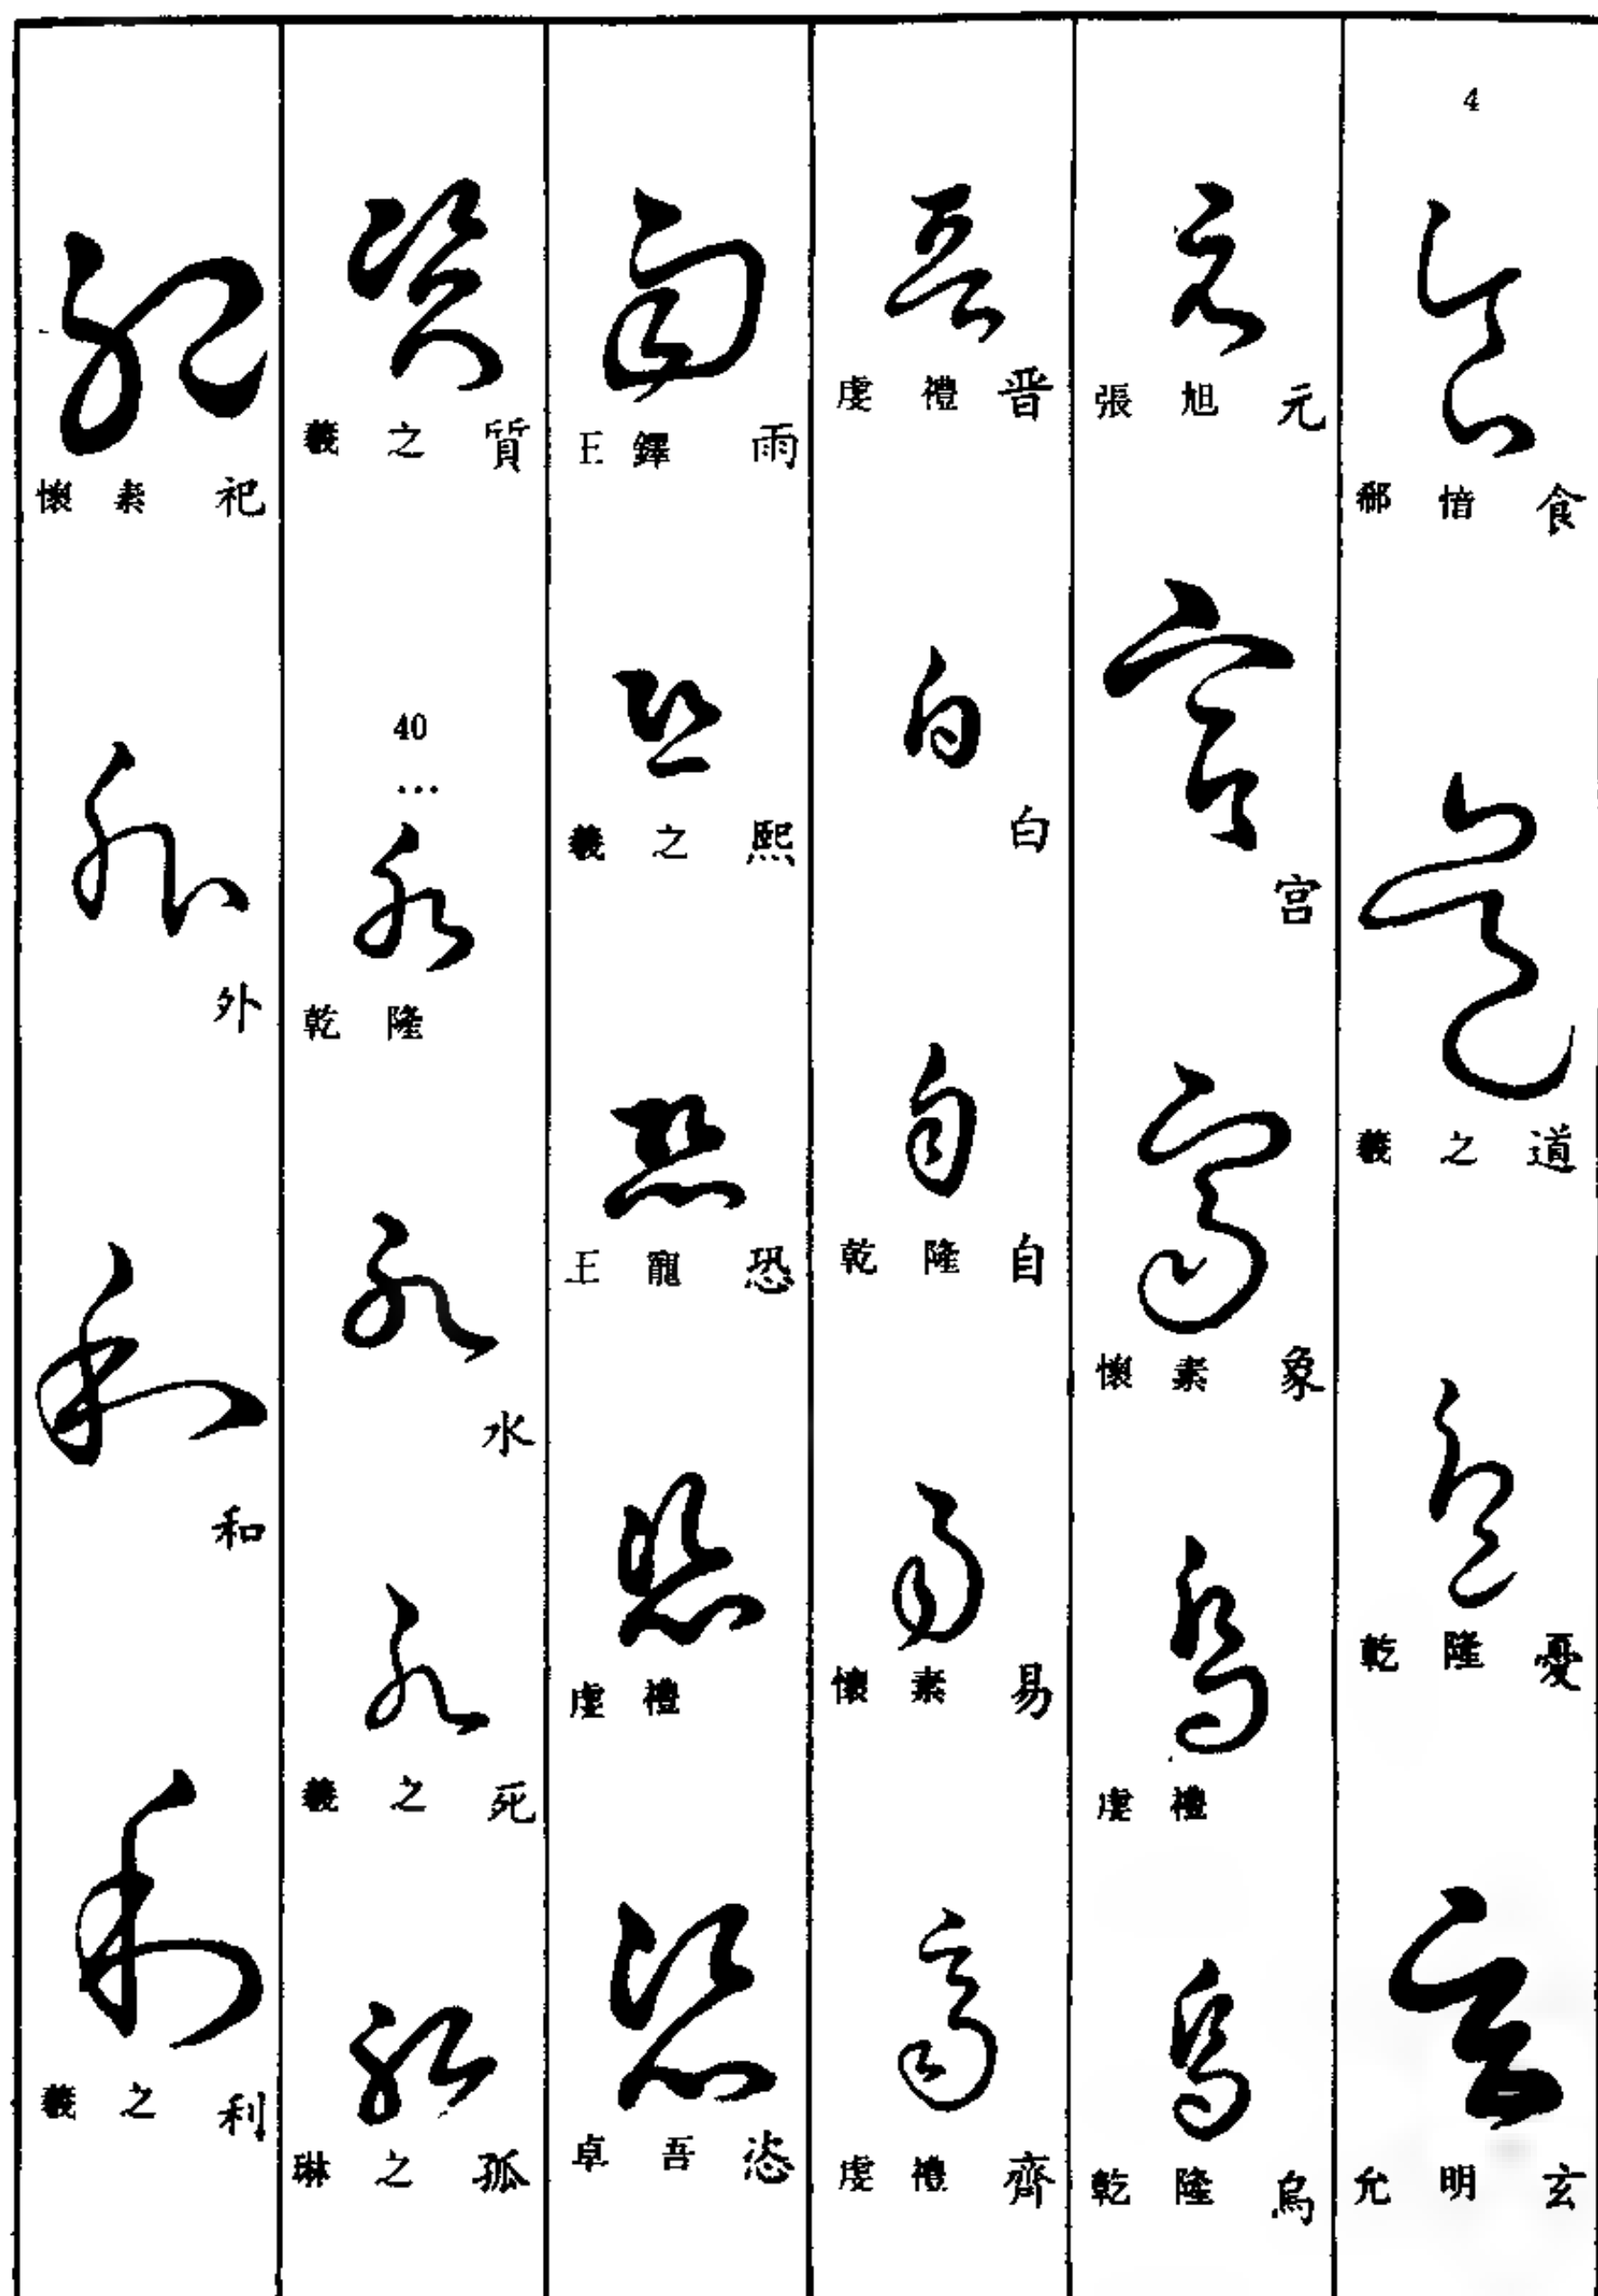 4
郗愔 食
羲之 道
乾隆 憂
允明 玄
張旭 元
宫
懷素 象
虔禮
乾隆 烏
虔禮 晋
白
乾隆 自
懷素 易
虔禮 齊
王鐸 雨
羲之 熙
王寵 恐
虔禮
卓吾 恣
羲之 質
40
…
乾隆
水
羲之 死
之 孤
懷素 祀
外
和
羲之 利